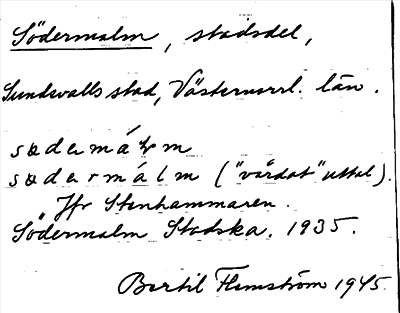 Södermalm, stadsdel,
Sundsvalls stad, Västernorrl. län.
södermálm ("vårdat" uttal).
Jfr Stenhammaren.
Södermalm Stadska. 1935.
Bertil Flemström 1945.